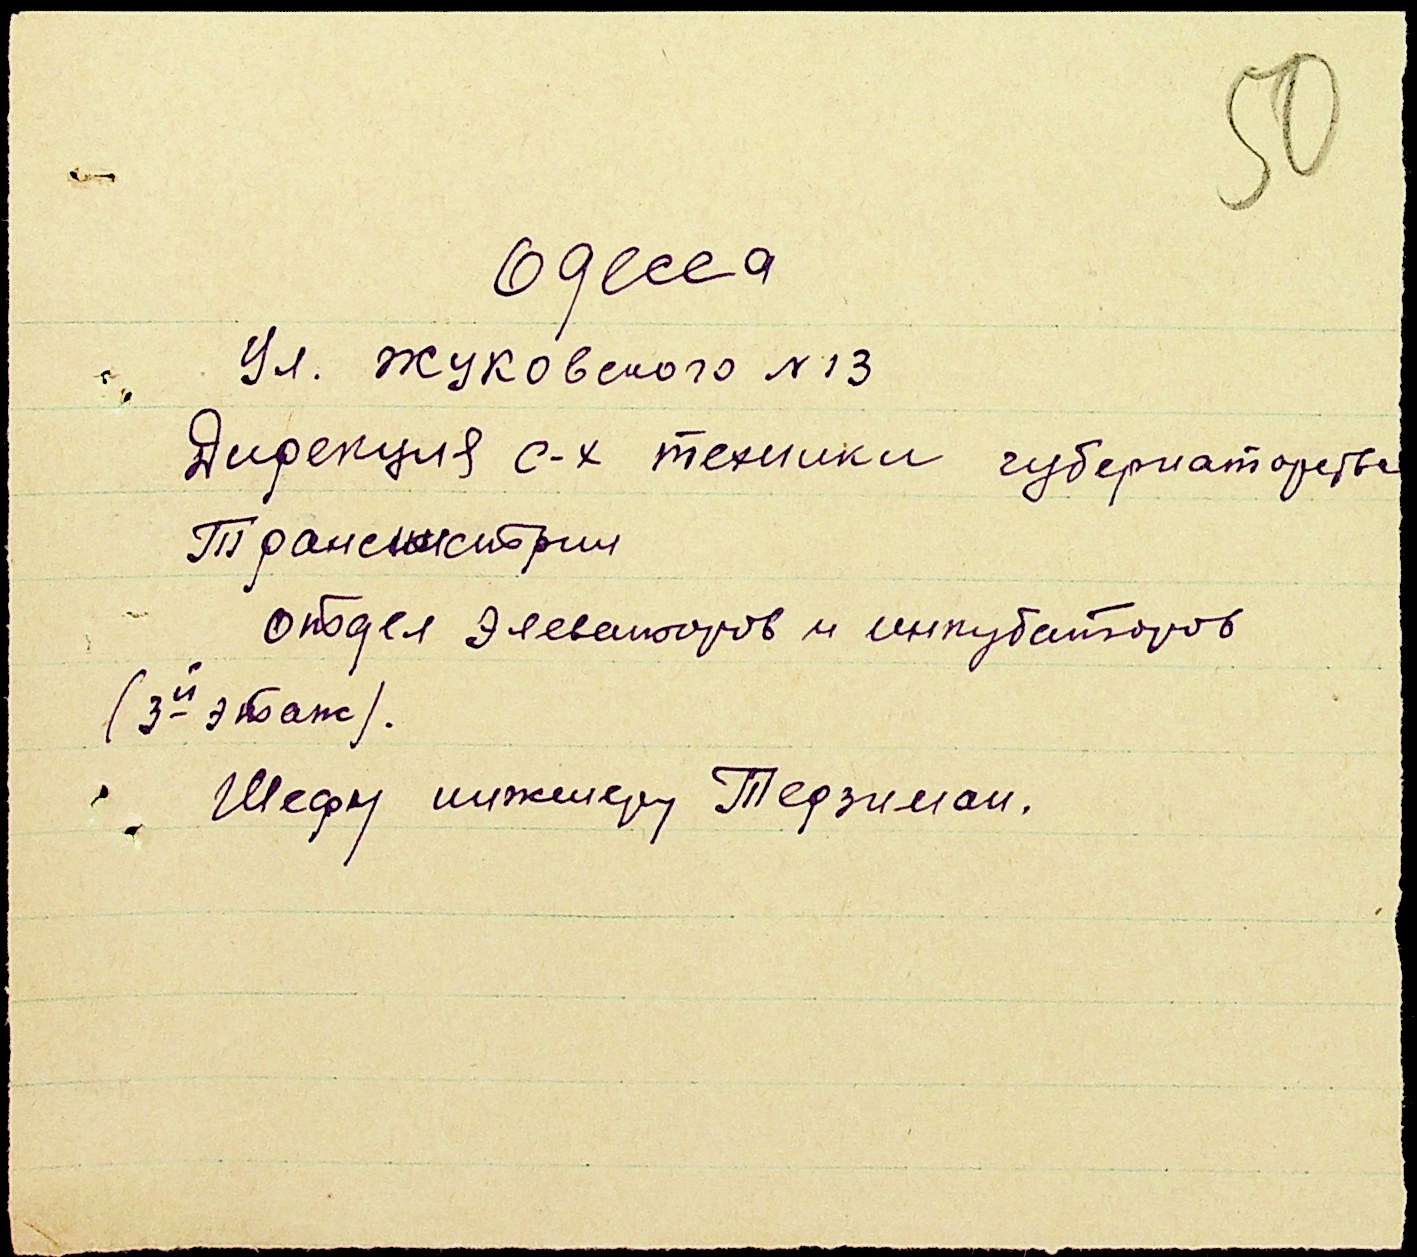 50
Одесса
Ул. Жуковского N 13
Дирекция с-х техники губернаторства
Транснистрии
отдел элеваторов и инкубаторов
(3й этаж).
Шефу инженеру Терзиман.